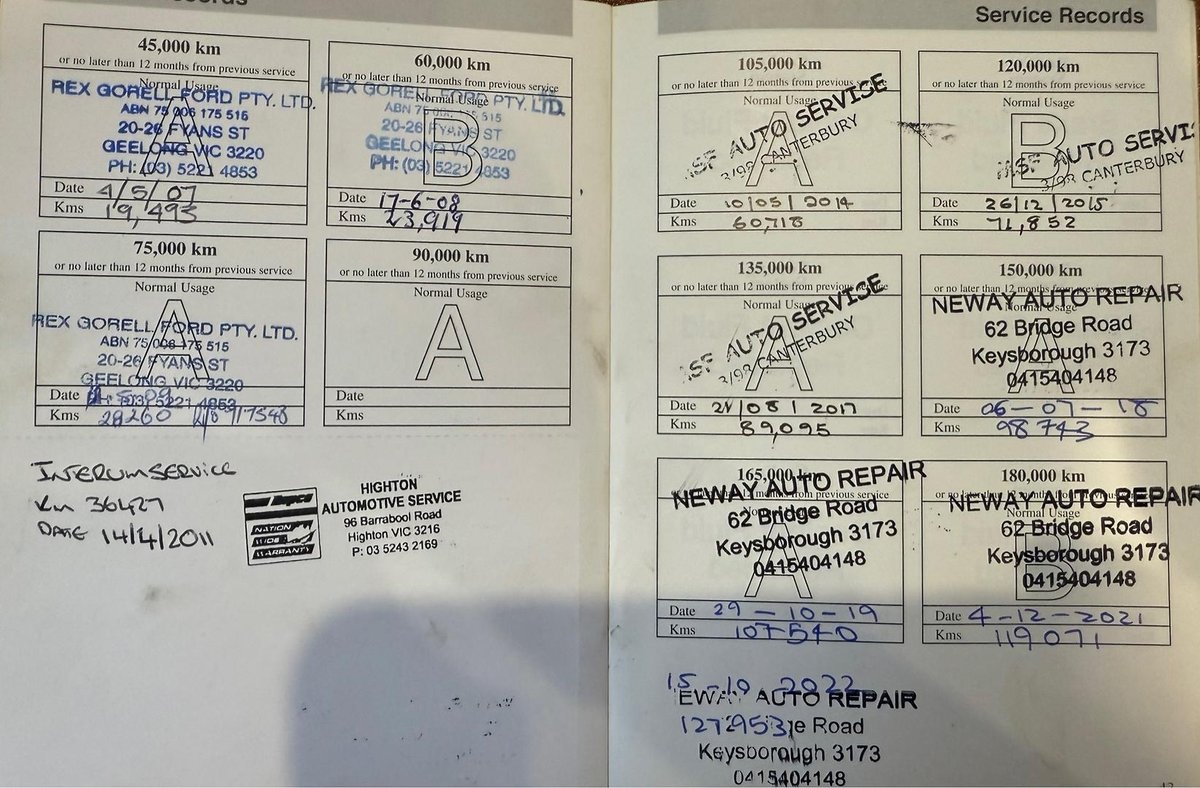 cords
45,000 km
or no later than 12 months from previous service
Normal Usage
A
REX GORELL FORD PTY. LTD.
ABN 75 006 175 515
20-26 FYANS ST
GEELONG VIC 3220
PH: (03) 5221 4853
Date 4/5/07
Kms 19,493
60,000 km
or no later than 12 months from previous service
Normal Usage
B
REX GORELL FORD PTY. LTD.
ABN 75 006 175 515
20-26 FYANS ST
GEELONG VIC 3220
PH: (03) 5221 4853
Date 17-6-08
Kms 23,919
75,000 km
or no later than 12 months from previous service
Normal Usage
A
REX GORELL FORD PTY. LTD.
ABN 75 006 175 515
20-26 FYANS ST
GEELONG VIC 3220
PH: (03) 5221 4853
Date
Kms 28260
90,000 km
or no later than 12 months from previous service
Normal Usage
A
Date
Kms
INTERUM SERVICE
Km 36427
DATE 14/4/2011
Repco
NATION
WIDE
WARRANTY
HIGHTON
AUTOMOTIVE SERVICE
96 Barrabool Road
Highton VIC 3216
P: 03 5243 2169
Service Records
105,000 km
or no later than 12 months from previous service
Normal Usage
A
SF AUTO SERVICE
3/98 CANTERBURY
Date 10/05/2014
Kms 60,718
120,000 km
or no later than 12 months from previous service
Normal Usage
B
SF AUTO SERVI
3/98 CANTERBURY
Date 26/12/2015
Kms 71,852
135,000 km
or no later than 12 months from previous service
Normal Usage
A
SF AUTO SERVICE
3/98 CANTERBURY
Date 21/08/2017
Kms 89,095
150,000 km
or no later than 12 months from previous service
Normal Usage
A
NEWAY AUTO REPAIR
62 Bridge Road
Keysborough 3173
0415404148
Date 06-07-18
Kms 98743
165,000 km
or no later than 12 months from previous service
Normal Usage
A
NEWAY AUTO REPAIR
62 Bridge Road
Keysborough 3173
0415404148
Date 29-10-19
Kms 107540
180,000 km
or no later than 12 months from previous service
Normal Usage
B
NEWAY AUTO REPAIR
62 Bridge Road
Keysborough 3173
0415404148
Date 4-12-2021
Kms 119071
15-10-2022
EWAY AUTO REPAIR
127953
ge Road
Keysborough 3173
0415404148